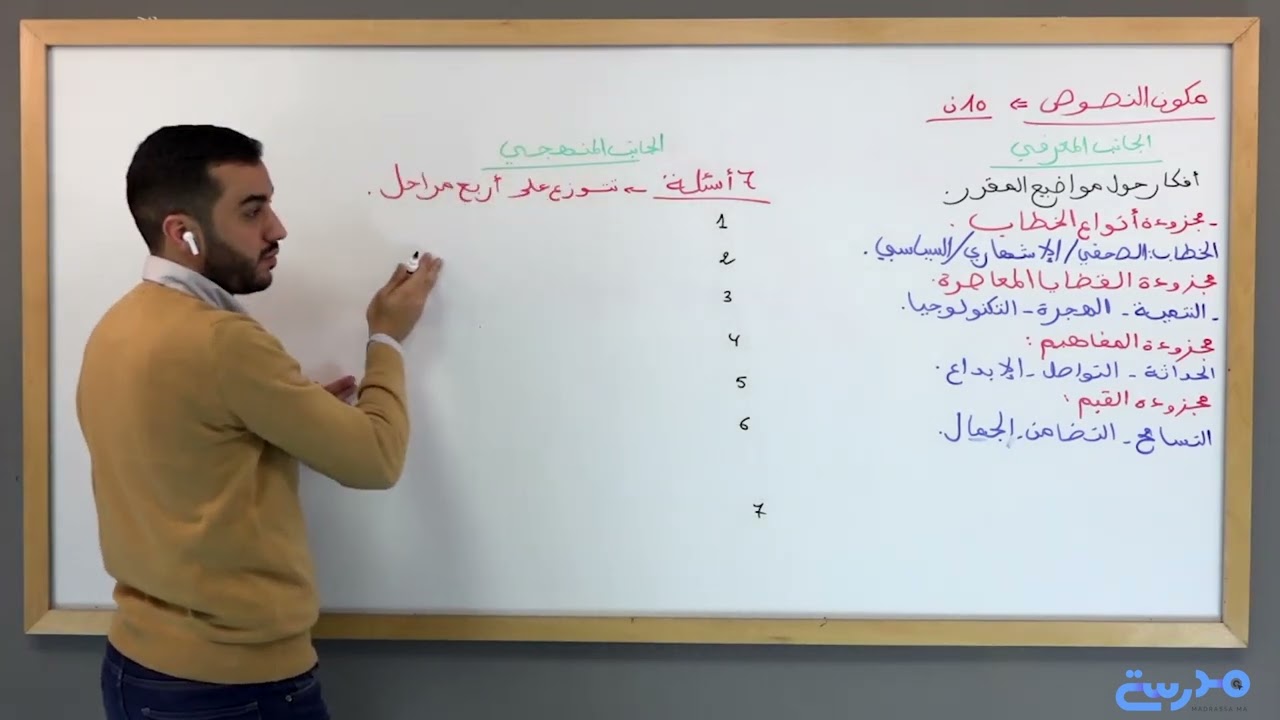 مكون النصوص ⇐ 10ن
الجانب المعرفي
أفكار حول مواضيع المقرر.
- مجزوءة أنواع الخطاب.
الخطاب: الصحفي/الإشهاري/السياسي.
مجزوءة القضايا المعاصرة.
- التنمية - الهجرة - التكنولوجيا.
مجزوءة المفاهيم:
الحداثة - التواصل - الإبداع.
مجزوءة القيم:
التسامح - التضامن - الجمال.
الجانب المنهجي
7 أسئلة ← تتوزع على أربع مراحل.
1
2
3
4
5
6
7
مدرسة
MADRASSA.MA